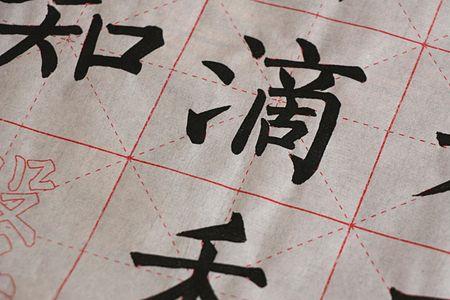 滴禾
知